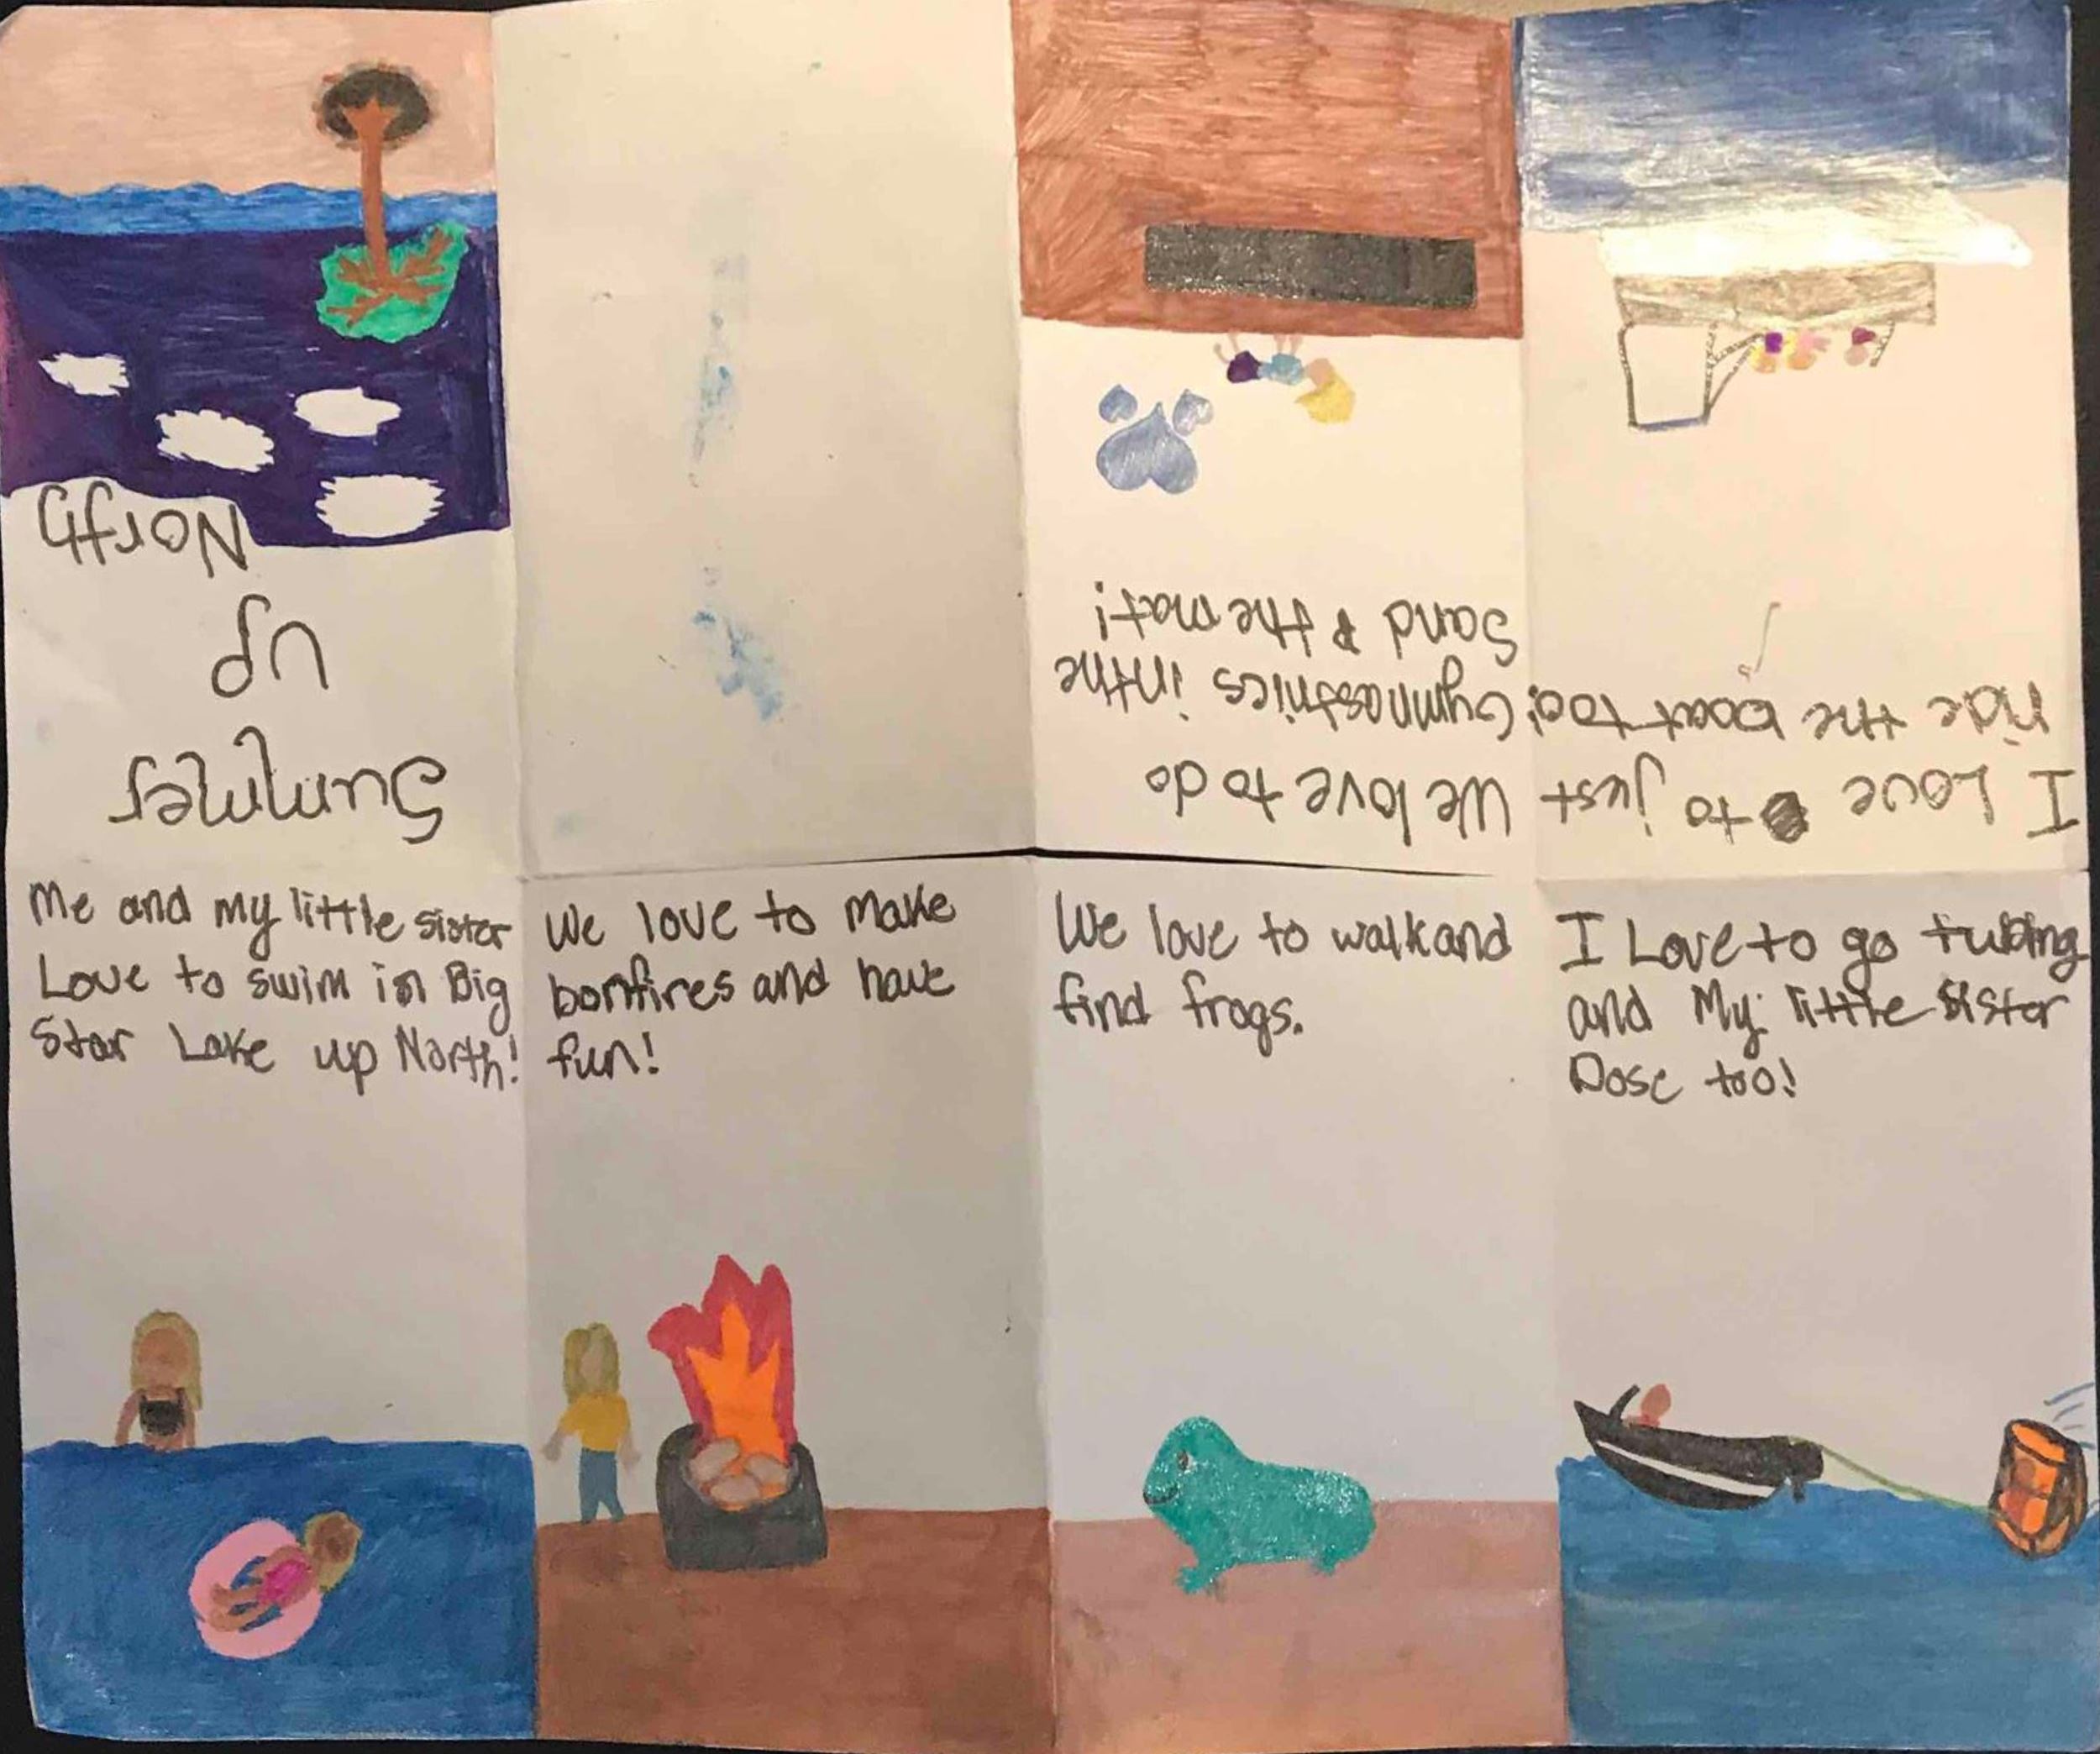 Summer
up
North
Me and my little sister
Love to swim in Big
Star Lake up North!
We love to make
bonfires and have
fun!
We love to walk and
find frogs.
I Love to go tubing
and My little sister
Dose too!
I Love to just
ride the boat too!
We love to do
Gymnasstnics in the
Sand & the mat!